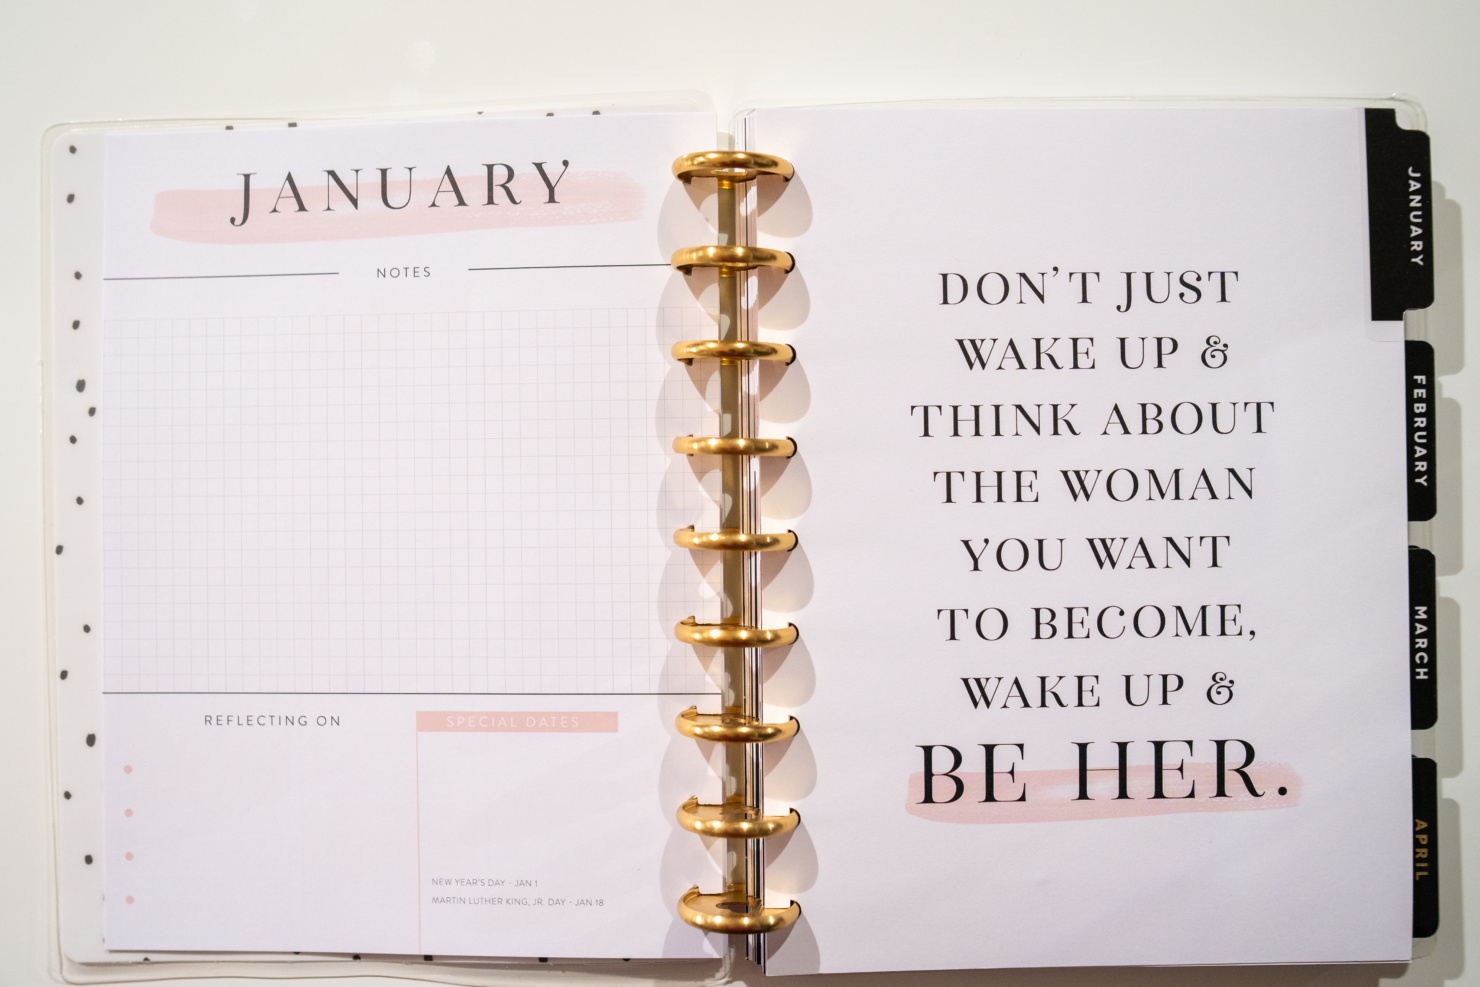 JANUARY
NOTES
REFLECTING ON
SPECIAL DATES
NEW YEAR'S DAY - JAN 1
MARTIN LUTHER KING, JR. DAY - JAN 18
DON'T JUST
WAKE UP &
THINK ABOUT
THE WOMAN
YOU WANT
TO BECOME,
WAKE UP &
BE HER.
JANUARY
FEBRUARY
MARCH
APRIL